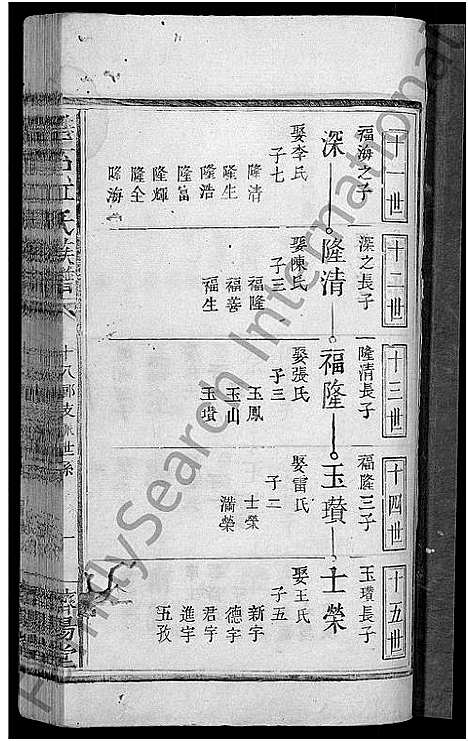 十一世
福海之子
深
娶李氏
子七
隆清
隆生
隆浩
隆富
隆輝
隆全
隆海
十二世
深之長子
隆清
娶陳氏
子三
福隆
福善
福生
十三世
隆清長子
福隆
娶張氏
子三
玉鳳
玉山
玉璝
十四世
福隆三子
玉璝
娶雷氏
子二
士榮
滿榮
十五世
玉璝長子
士榮
娶王氏
子五
新宇
德宇
君宇
進宇
五孜
氏族譜
十八郎支 世系
一
濟陽堂
FamilySearch International